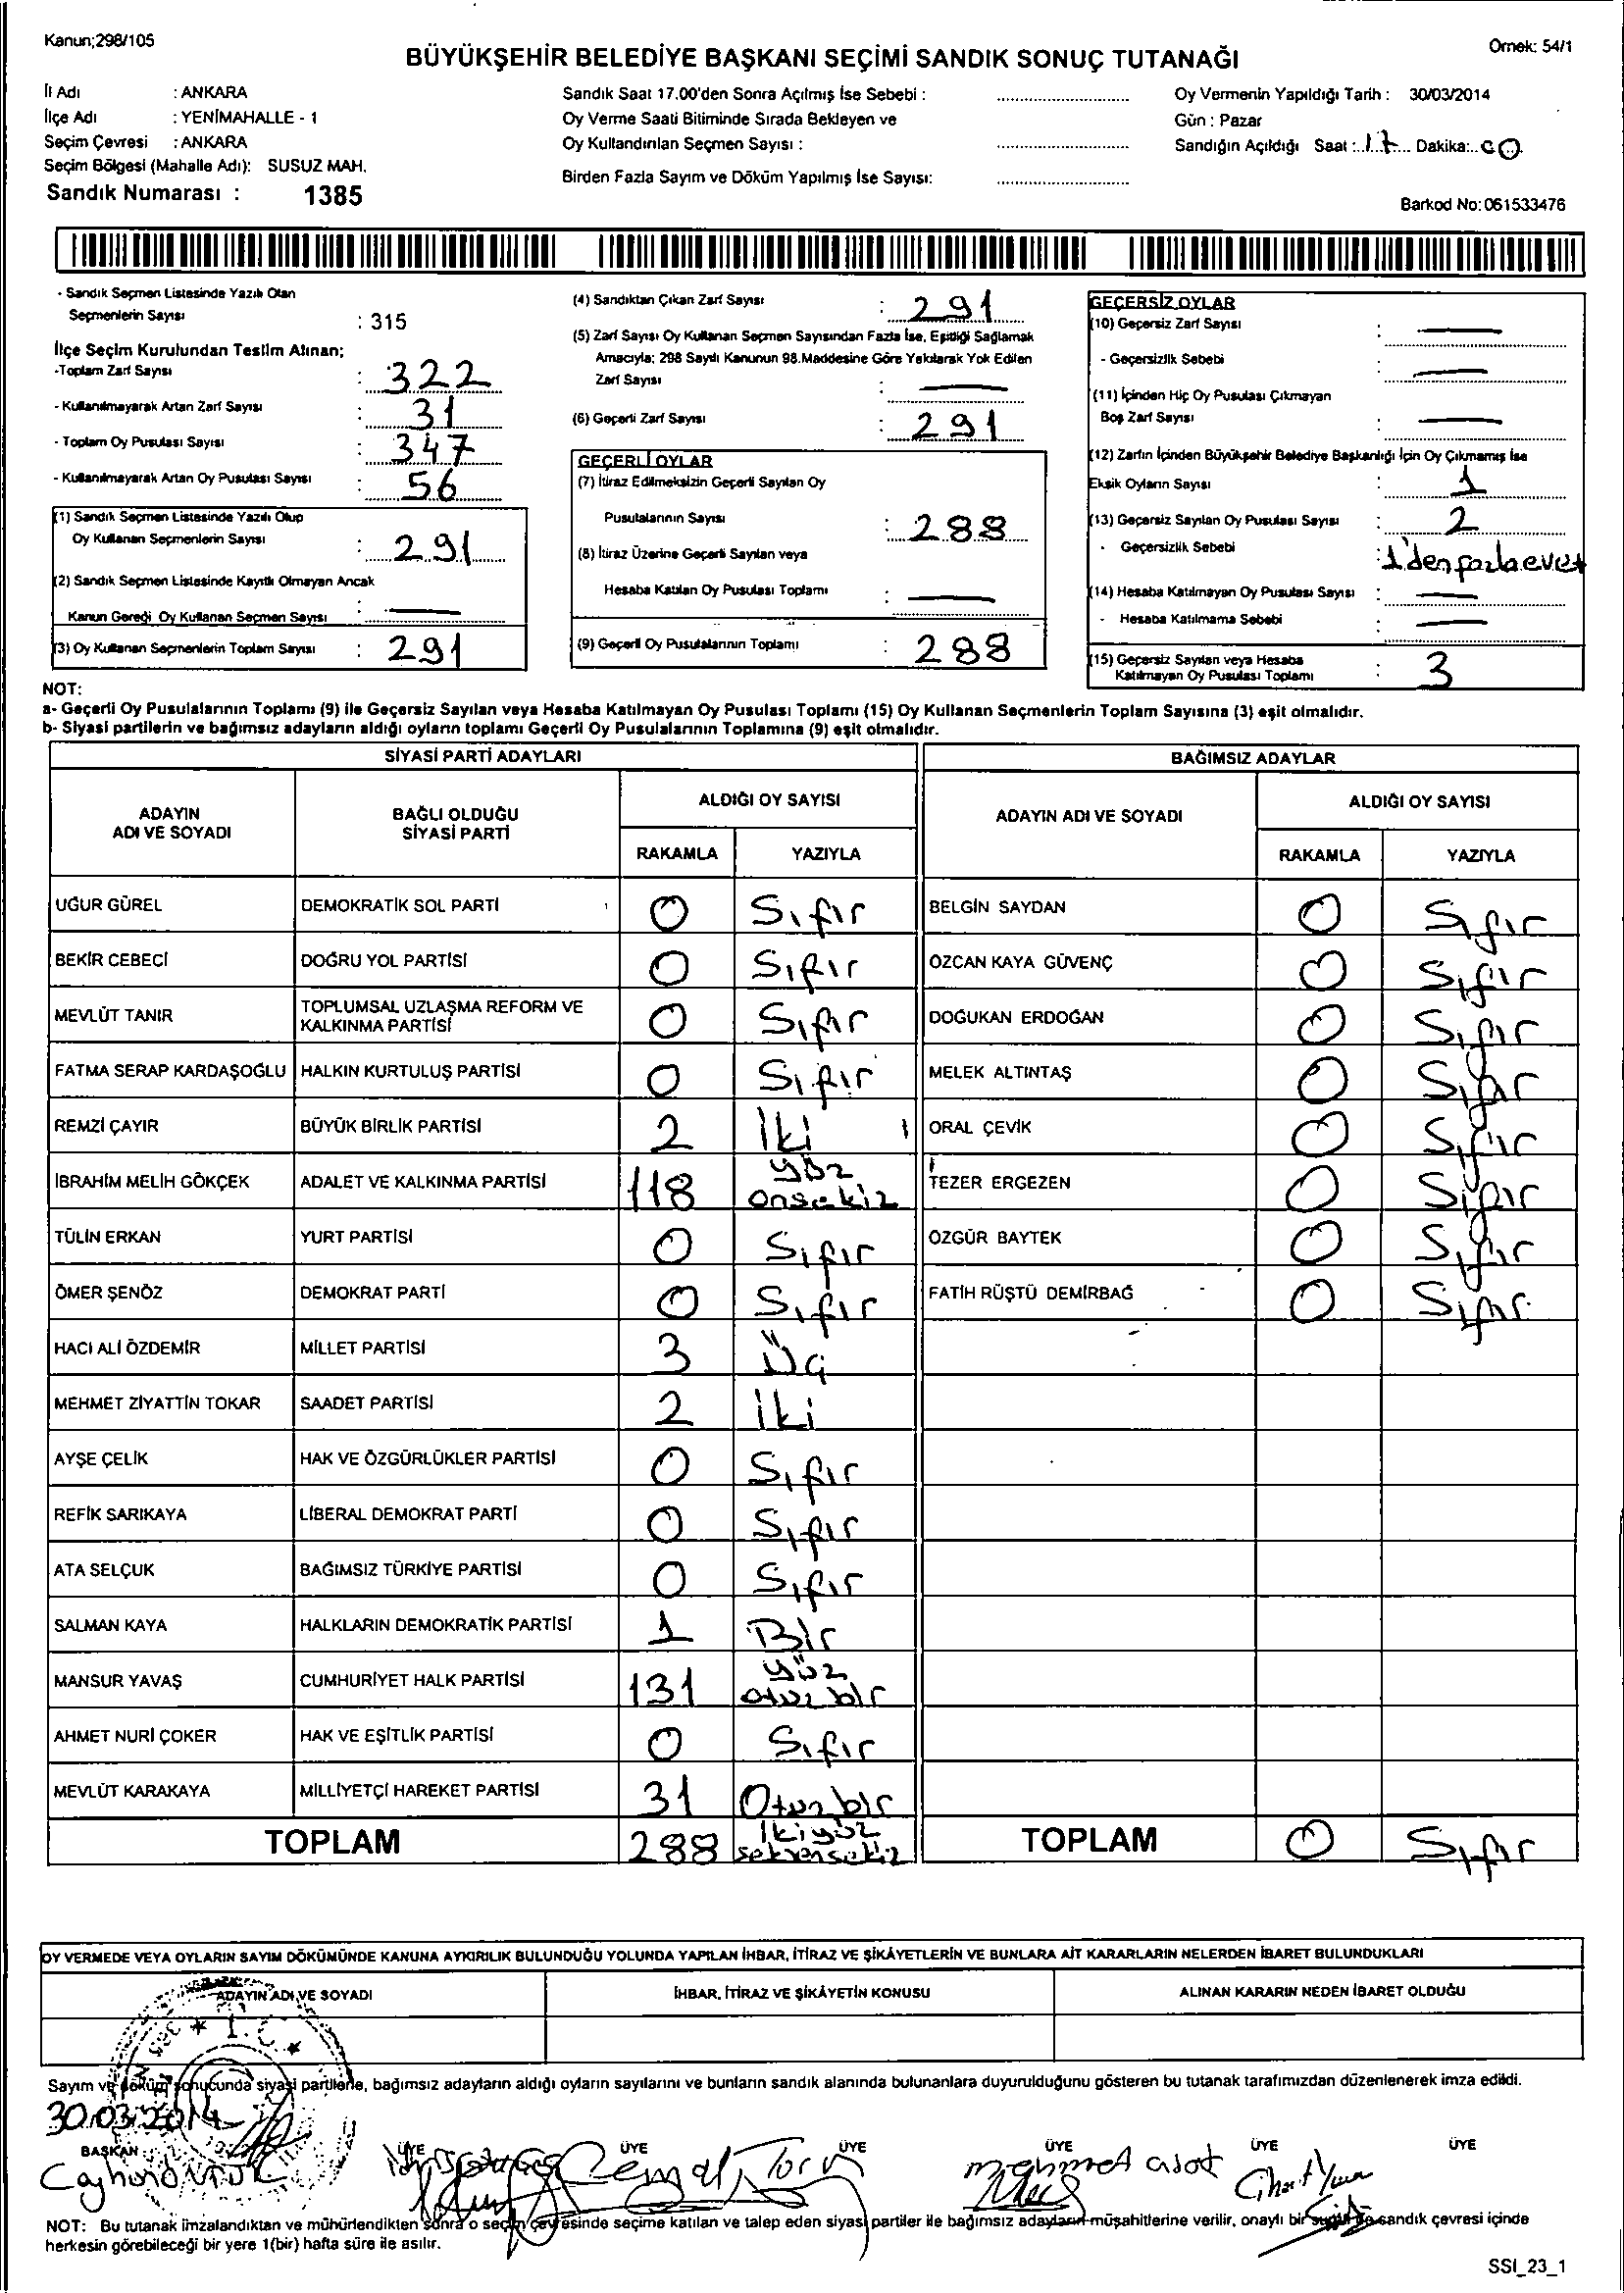 Kanun;298/105
BÜYÜKŞEHİR BELEDİYE BAŞKANI SEÇİMİ SANDIK SONUÇ TUTANAĞI
Örnek: 54/1
İl Adı : ANKARA
İlçe Adı : YENİMAHALLE - 1
Seçim Çevresi : ANKARA
Seçim Bölgesi (Mahalle Adı): SUSUZ MAH.
Sandık Numarası : 1385
Sandık Saat 17.00'den Sonra Açılmış İse Sebebi : ................
Oy Verme Saati Bitiminde Sırada Bekleyen ve
Oy Kullandırılan Seçmen Sayısı : ................
Birden Fazla Sayım ve Döküm Yapılmış İse Sayısı: ................
Oy Vermenin Yapıldığı Tarih : 30/03/2014
Gün : Pazar
Sandığın Açıldığı Saat : 17 Dakika: 00
Barkod No: 061533476
- Sandık Seçmen Listesinde Yazılı Olan
Seçmenlerin Sayısı : 315
İlçe Seçim Kurulundan Teslim Alınan;
-Toplam Zarf Sayısı : 322
- Kullanılmayarak Artan Zarf Sayısı : 31
- Toplam Oy Pusulası Sayısı : 347
- Kullanılmayarak Artan Oy Pusulası Sayısı : 56
(1) Sandık Seçmen Listesinde Yazılı Olup
Oy Kullanan Seçmenlerin Sayısı : 291
(2) Sandık Seçmen Listesinde Kayıtlı Olmayan Ancak
Kanun Gereği Oy Kullanan Seçmen Sayısı : —
(3) Oy Kullanan Seçmenlerin Toplam Sayısı : 291
(4) Sandıktan Çıkan Zarf Sayısı : 291
(5) Zarf Sayısı Oy Kullanan Seçmen Sayısından Fazla İse, Eşitliği Sağlamak
Amacıyla; 298 Sayılı Kanunun 98.Maddesine Göre Yakılarak Yok Edilen
Zarf Sayısı : —
(6) Geçerli Zarf Sayısı : 291
GEÇERLİ OYLAR
(7) İtiraz Edilmeksizin Geçerli Sayılan Oy
Pusulalarının Sayısı : 288
(8) İtiraz Üzerine Geçerli Sayılan veya
Hesaba Katılan Oy Pusulası Toplamı : —
(9) Geçerli Oy Pusulalarının Toplamı : 288
GEÇERSİZ OYLAR
(10) Geçersiz Zarf Sayısı : —
- Geçersizlik Sebebi : —
(11) İçinden Hiç Oy Pusulası Çıkmayan
Boş Zarf Sayısı : —
(12) Zarfın İçinden Büyükşehir Belediye Başkanlığı İçin Oy Çıkmamış İse
Eksik Oyların Sayısı : 1
(13) Geçersiz Sayılan Oy Pusulası Sayısı : 2
- Geçersizlik Sebebi : 1'den fazla evet
(14) Hesaba Katılmayan Oy Pusulası Sayısı : —
- Hesaba Katılmama Sebebi : —
(15) Geçersiz Sayılan veya Hesaba
Katılmayan Oy Pusulası Toplamı : 3
NOT:
a- Geçerli Oy Pusulalarının Toplamı (9) ile Geçersiz Sayılan veya Hesaba Katılmayan Oy Pusulası Toplamı (15) Oy Kullanan Seçmenlerin Toplam Sayısına (3) eşit olmalıdır.
b- Siyasi partilerin ve bağımsız adayların aldığı oyların toplamı Geçerli Oy Pusulalarının Toplamına (9) eşit olmalıdır.
SİYASİ PARTİ ADAYLARI
ADAYIN ADI VE SOYADI BAĞLI OLDUĞU SİYASİ PARTİ ALDIĞI OY SAYISI
RAKAMLA YAZIYLA
UĞUR GÜREL DEMOKRATİK SOL PARTİ 0 Sıfır
BEKİR CEBECİ DOĞRU YOL PARTİSİ 0 Sıfır
MEVLÜT TANIR TOPLUMSAL UZLAŞMA REFORM VE KALKINMA PARTİSİ 0 Sıfır
FATMA SERAP KARDAŞOĞLU HALKIN KURTULUŞ PARTİSİ 0 Sıfır
REMZİ ÇAYIR BÜYÜK BİRLİK PARTİSİ 2 İki
İBRAHİM MELİH GÖKÇEK ADALET VE KALKINMA PARTİSİ 118 yüz onsekiz
TÜLİN ERKAN YURT PARTİSİ 0 Sıfır
ÖMER ŞENÖZ DEMOKRAT PARTİ 0 Sıfır
HACI ALİ ÖZDEMİR MİLLET PARTİSİ 3 Üç
MEHMET ZİYATTİN TOKAR SAADET PARTİSİ 2 İki
AYŞE ÇELİK HAK VE ÖZGÜRLÜKLER PARTİSİ 0 Sıfır
REFİK SARIKAYA LİBERAL DEMOKRAT PARTİ 0 Sıfır
ATA SELÇUK BAĞIMSIZ TÜRKİYE PARTİSİ 0 Sıfır
SALMAN KAYA HALKLARIN DEMOKRATİK PARTİSİ 1 Bir
MANSUR YAVAŞ CUMHURİYET HALK PARTİSİ 131 yüz otuz bir
AHMET NURİ ÇOKER HAK VE EŞİTLİK PARTİSİ 0 Sıfır
MEVLÜT KARAKAYA MİLLİYETÇİ HAREKET PARTİSİ 31 Otuz bir
TOPLAM 288 İkiyüz seksensekiz
BAĞIMSIZ ADAYLAR
ADAYIN ADI VE SOYADI ALDIĞI OY SAYISI
RAKAMLA YAZIYLA
BELGİN SAYDAN 0 Sıfır
ÖZCAN KAYA GÜVENÇ 0 Sıfır
DOĞUKAN ERDOĞAN 0 Sıfır
MELEK ALTINTAŞ 0 Sıfır
ORAL ÇEVİK 0 Sıfır
TEZER ERGEZEN 0 Sıfır
ÖZGÜR BAYTEK 0 Sıfır
FATİH RÜŞTÜ DEMİRBAĞ 0 Sıfır
TOPLAM 0 Sıfır
OY VERMEDE VEYA OYLARIN SAYIM DÖKÜMÜNDE KANUNA AYKIRILIK BULUNDUĞU YOLUNDA YAPILAN İHBAR, İTİRAZ VE ŞİKÂYETLERİN VE BUNLARA AİT KARARLARIN NELERDEN İBARET BULUNDUKLARI
ADAYIN ADI VE SOYADI İHBAR, İTİRAZ VE ŞİKÂYETİN KONUSU ALINAN KARARIN NEDEN İBARET OLDUĞU
T.C.
Sayım ve döküm sonucunda siyasi partilerle, bağımsız adayların aldığı oyların sayılarını ve bunların sandık alanında bulunanlara duyurulduğunu gösteren bu tutanak tarafımızdan düzenlenerek imza edildi.
30.03.2014
BAŞKAN ÜYE ÜYE ÜYE ÜYE ÜYE ÜYE
Cemal Torun
NOT: Bu tutanak imzalandıktan ve mühürlendikten sonra o seçim çevresinde seçime katılan ve talep eden siyasi partiler ile bağımsız adayların müşahitlerine verilir, onaylı bir sureti de sandık çevresi içinde
herkesin görebileceği bir yere 1(bir) hafta süre ile asılır.
SSI_23_1